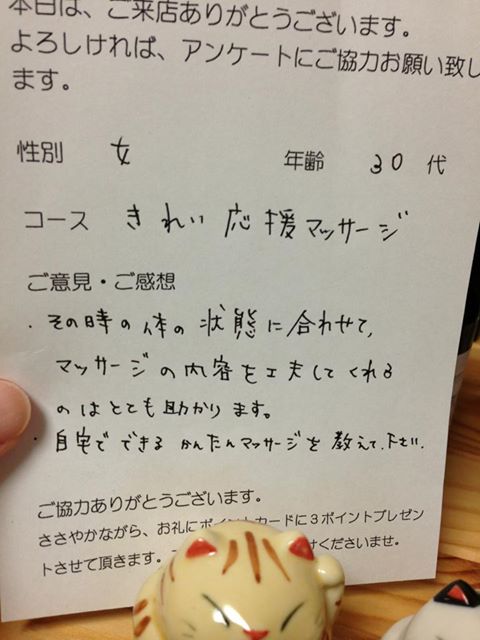 本日は、ご来店ありがとうございます。
よろしければ、アンケートにご協力お願い致し
ます。
性別 女 年齢 30 代
コース きれい応援マッサージ
ご意見・ご感想
・その時の体の状態に合わせて、
マッサージの内容を工夫してくれる
のはとても助かります。
・自宅でできるかんたんマッサージを教えて下さい。
ご協力ありがとうございます。
ささやかながら、お礼にポイントカードに3ポイントプレゼン
トさせて頂きます。 けくださいませ。